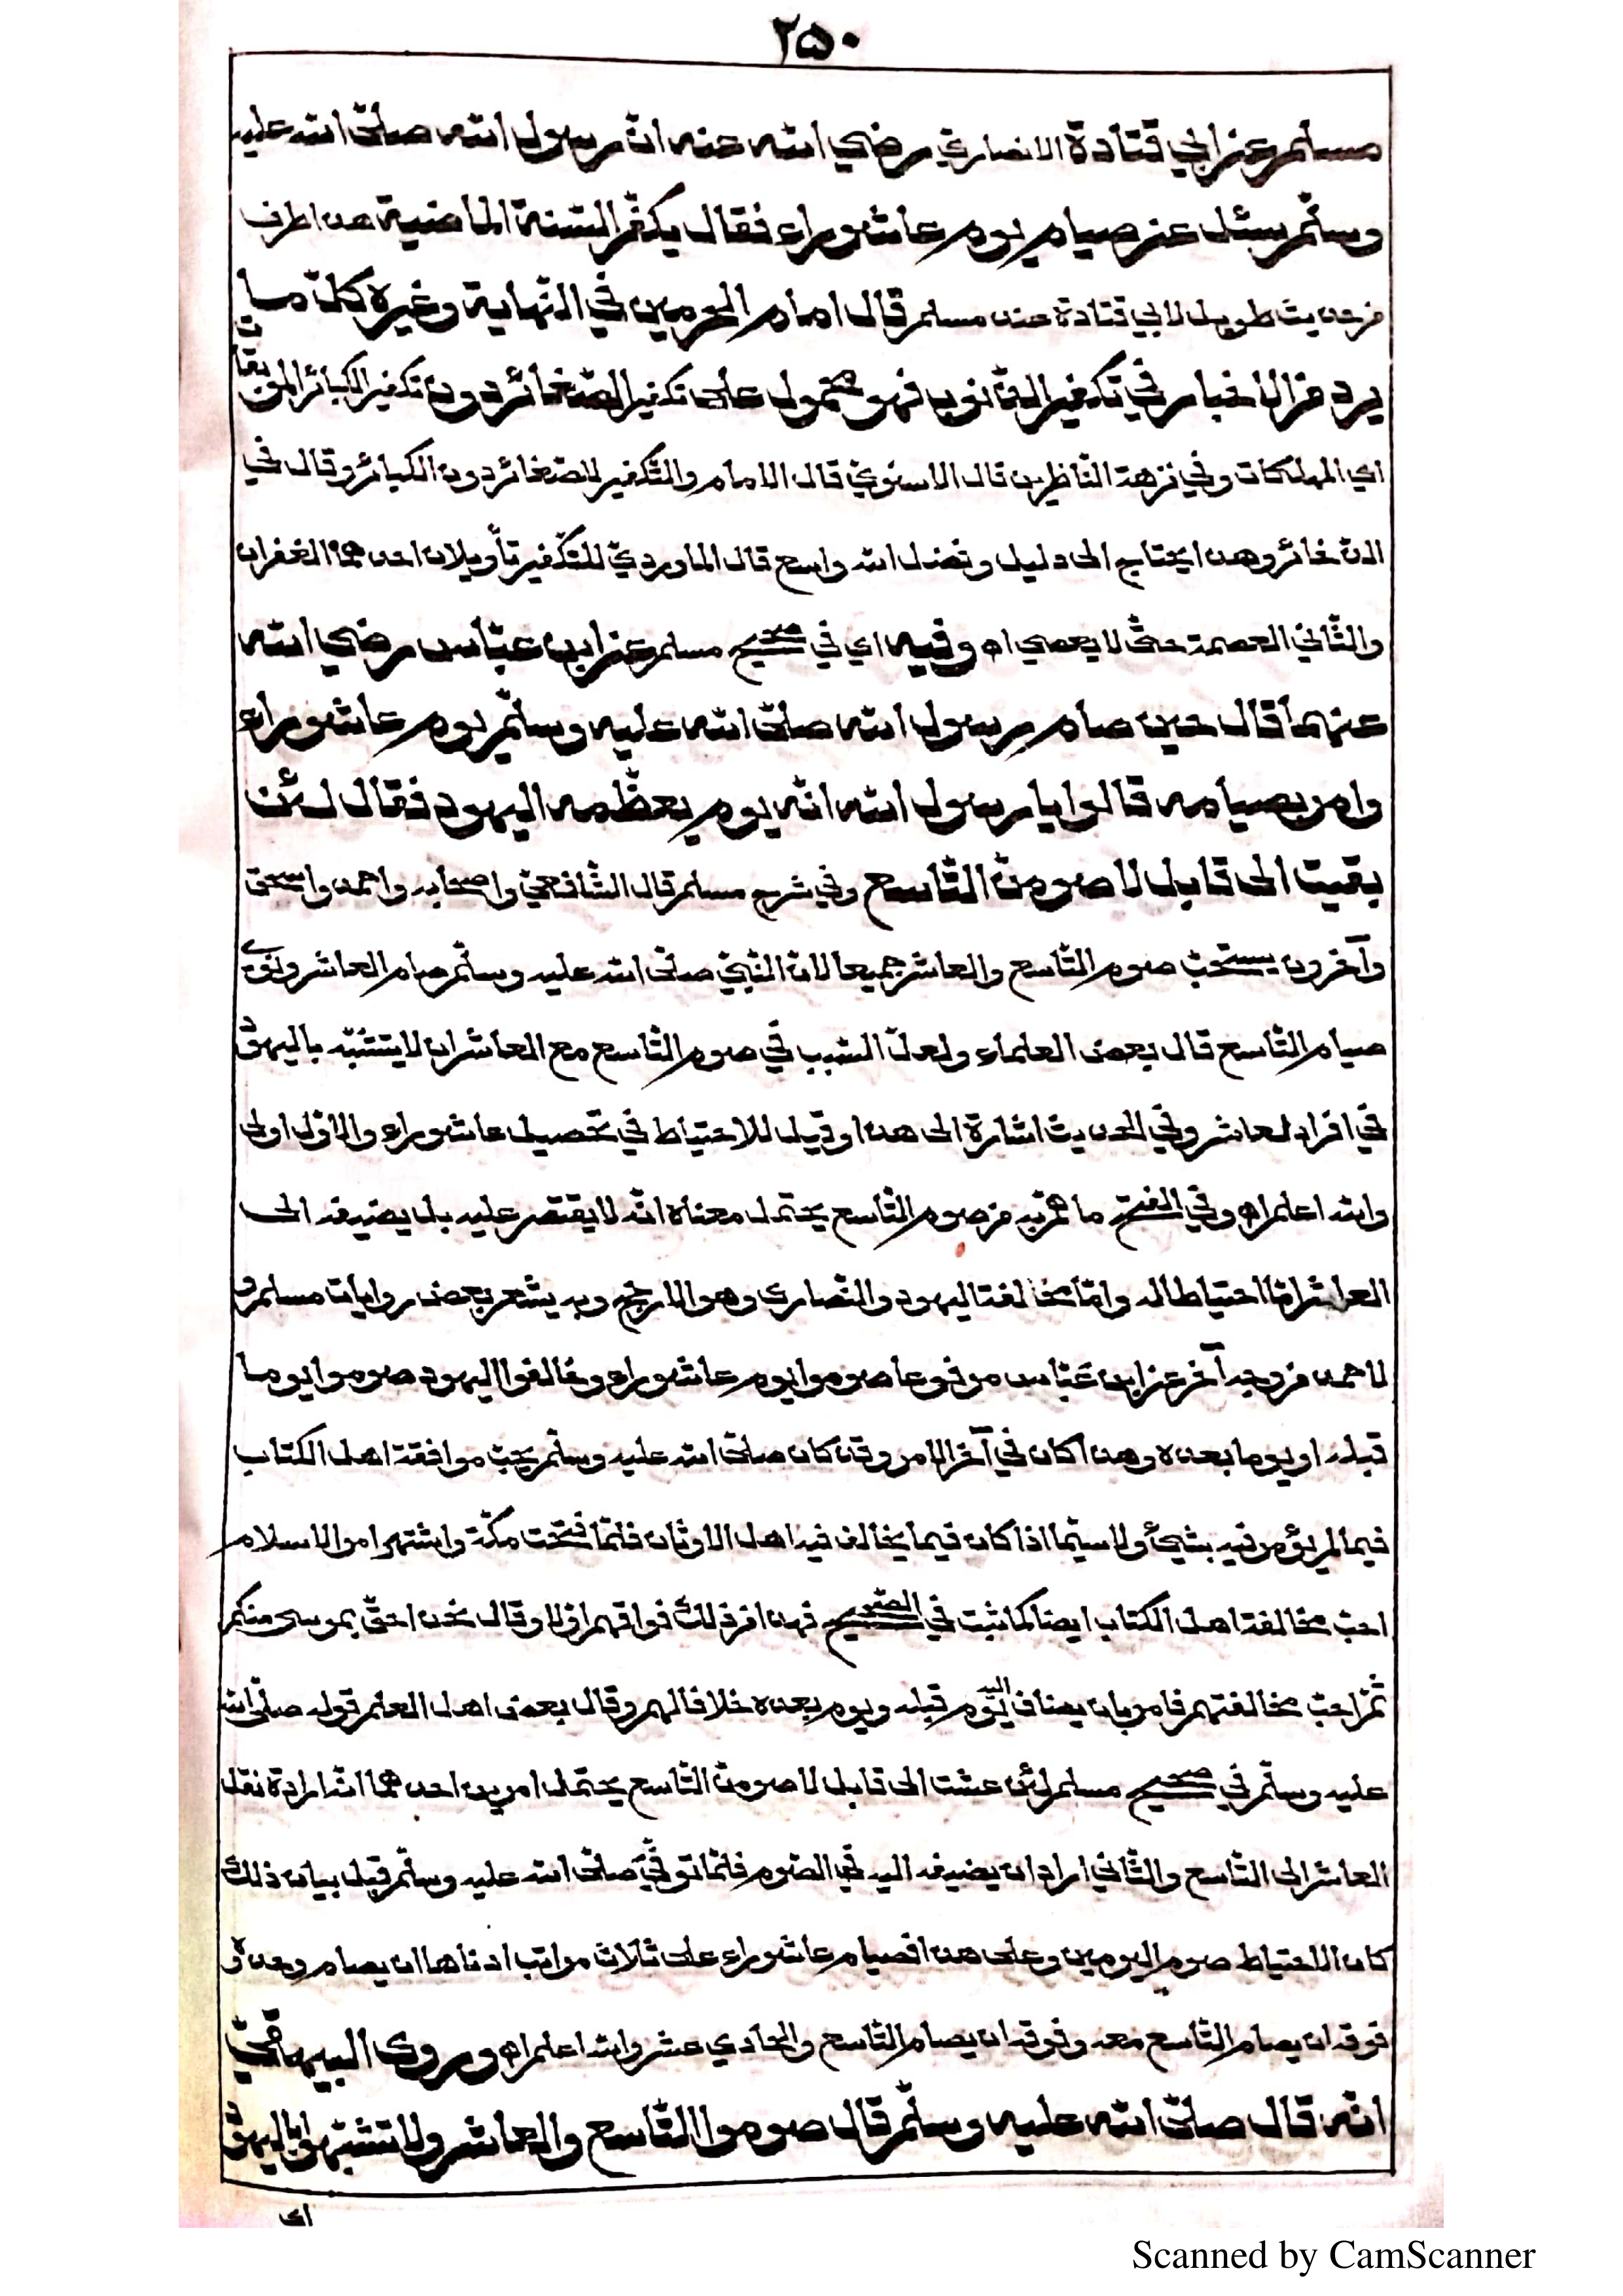 ٢٥٠
مسلم عن ابي قتادة الانصاري رضي الله عنه ان رسول الله صلى الله عليه
وسلم سئل عن صيام يوم عاشوراء فقال يكفر السنة الماضية هذا طرف
من حديث طويل لابي قتادة عند مسلم قال امام الحرمين في النهاية وغيره كل ما
يرد من الاخبار في تكفير الذنوب فهو محمول على تكفير الصغائر دون تكفير الكبائر الموبقات
اي المهلكات وفي نزهة الناظرين قال الاسنوي قال الامام والتكفير للصغائر دون الكبائر وقال في
الذخائر وهذا يحتاج الى دليل وفضل الله واسع قال الماوردي للتكفير تأويلان احدهما الغفران
والثاني العصمة حتى لا يعصي اه وفيه اي في صحيح مسلم عن ابن عباس رضي الله
عنهما قال حين صام رسول الله صلى الله عليه وسلم يوم عاشوراء
وامر بصيامه قالوا يا رسول الله انه يوم يعظمه اليهود فقال لئن
بقيت الى قابل لاصومن التاسع وفي شرح مسلم قال الشافعي واصحابه واحمد واسحق
وآخرون يستحب صوم التاسع والعاشر جميعا لان النبي صلى الله عليه وسلم صام العاشر ونوى
صيام التاسع قال بعض العلماء ولعل السبب في صوم التاسع مع العاشر ان لا يتشبه باليهود
في افراد لعاشر وفي الحديث اشارة الى هذا وقيل للاحتياط في تحصيل عاشوراء والاول اولى
والله اعلم اه وفي الفتح ما هم به من صوم التاسع يحتمل معناه انه لا يقتصر عليه بل يضيفه الى
العاشر اما احتياطا له واما مخالفة اليهود والنصارى وهو الارجح وبه يشعر بعض روايات مسلم و
لاحمد من وجه آخر عن ابن عباس مرفوعا صوموا يوم عاشوراء وخالفوا اليهود صوموا يوما
قبله او يوما بعده وهذا كان في آخر الامر وقد كان صلى الله عليه وسلم يحب موافقة اهل الكتاب
فيما لم يؤمر فيه بشيئ ولا سيما اذا كان فيما يخالف فيه اهل الاوثان فلما فتحت مكة واشتهر امر الاسلام
احب مخالفة اهل الكتاب ايضا كما ثبت في الصحيح فهذا من ذلك فوافقهم اولا وقال نحن احق بموسى منكم
ثم احب مخالفتهم فامر بان يضاف اليه يوم قبله ويوم بعده خلافا لهم وقال بعض اهل العلم قوله صلى الله
عليه وسلم في صحيح مسلم لئن عشت الى قابل لاصومن التاسع يحتمل امرين احدهما انه اراد نقل
العاشر الى التاسع والثاني اراد ان يضيفه اليه في الصوم فلما توفي صلى الله عليه وسلم قبل بيان ذلك
كان الاحتياط صوم اليومين وعلى هذا فصيام عاشوراء على ثلاث مراتب ادناها ان يصام وحده و
فوقه ان يصام التاسع معه وفوقه ان يصام التاسع والحادي عشر والله اعلم اه وروى البيهقي
انه قال صلى الله عليه وسلم قال صوموا التاسع والعاشر ولا تشبهوا باليهود
اى
Scanned by CamScanner